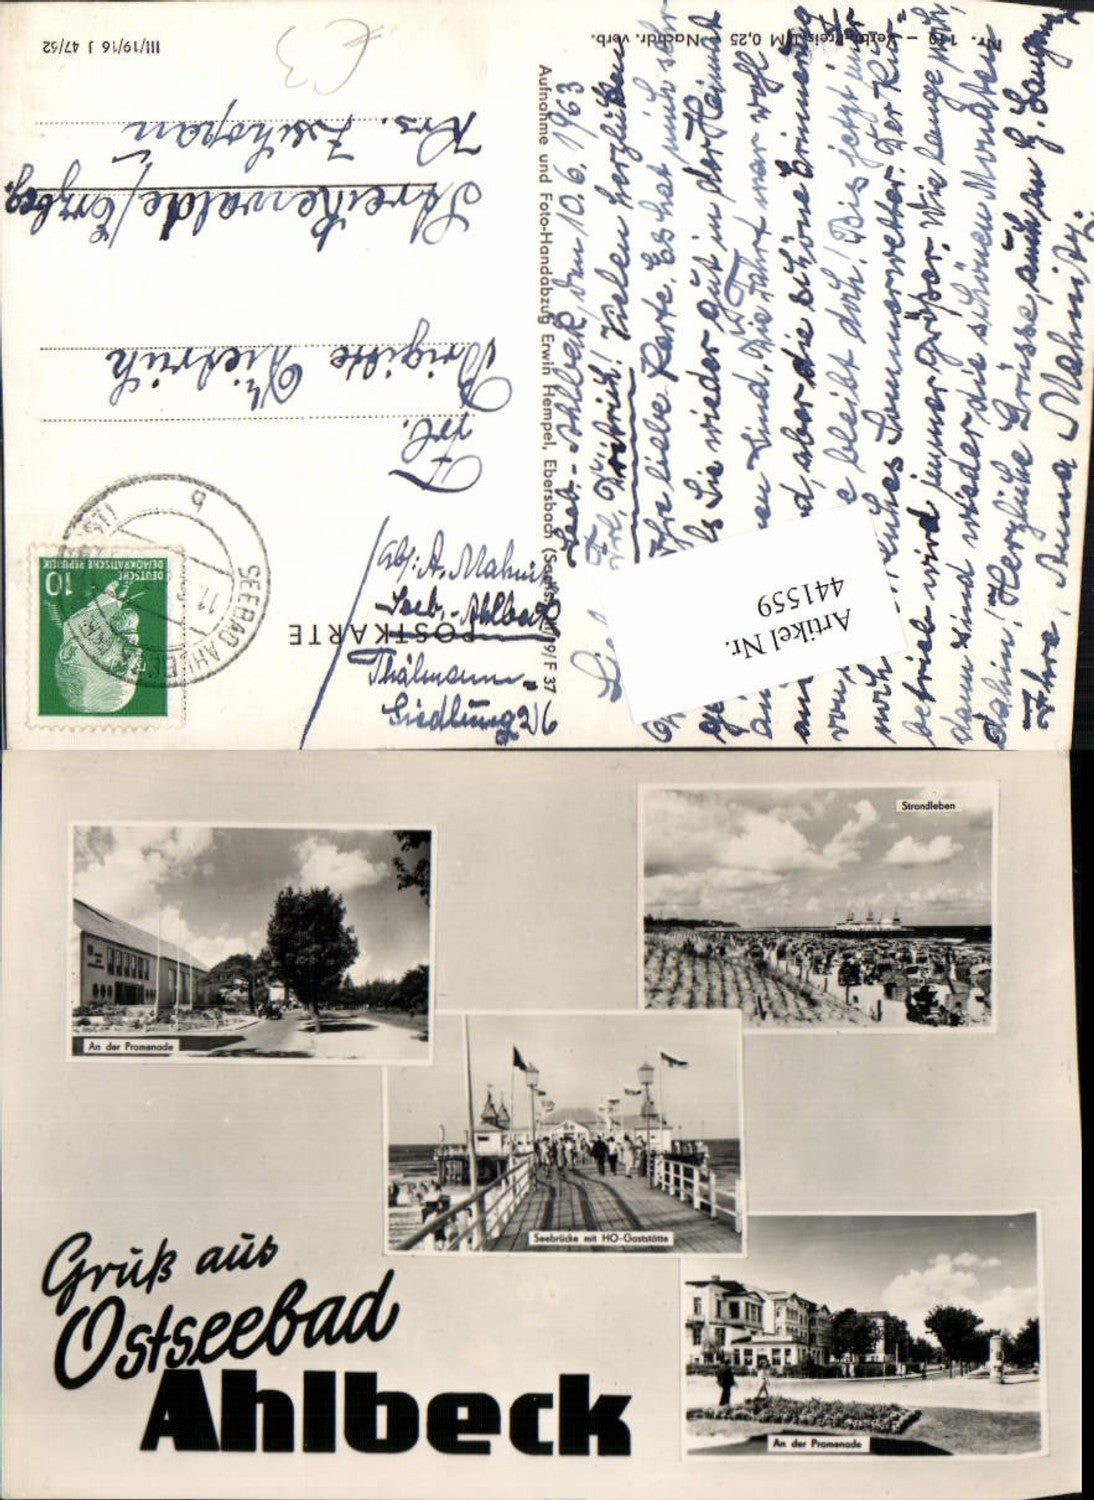 Seeb.-Ahlbeck, den 10.6.1963
Liebes Frl. Dietrich! Vielen herzlichen
Ihre liebe Karte. Es hat mich sehr
Sie wieder gut in der Heimat
sind. Die Fahrt war wohl
aber die schöne Erinnerung
bleibt doch! Bis jetzt
noch Sommerwetter. Der Kur-
betrieb wird immer größer. Wie lange noch,
dann sind wieder die schönen Monate
dahin! Herzliche Grüsse, auch an
Ihre Anna Mahnitz.
Nr. 110 – Verbr.-Preis DM 0,25 – Nachdr. verb.
Aufnahme und Foto-Handabzug Erwin Hempel, Ebersbach (Sachs) 19/F 37
Artikel Nr.
441559
POSTKARTE
Abs.: A. Mahnitz
Seeb.-Ahlbeck
Thälmann-
Siedlung 26
DEUTSCHE
DEMOKRATISCHE REPUBLIK
10
SEEBAD AHLBECK
b
Frl.
Brigitte Dietrich
Schreckerwalde/Erzgeb.
Krs. Zschopau
III/19/16 J 47/62
€3
An der Promenade
Strandleben
Seebrücke mit HO-Gaststätte
An der Promenade
Gruß aus
Ostseebad
Ahlbeck